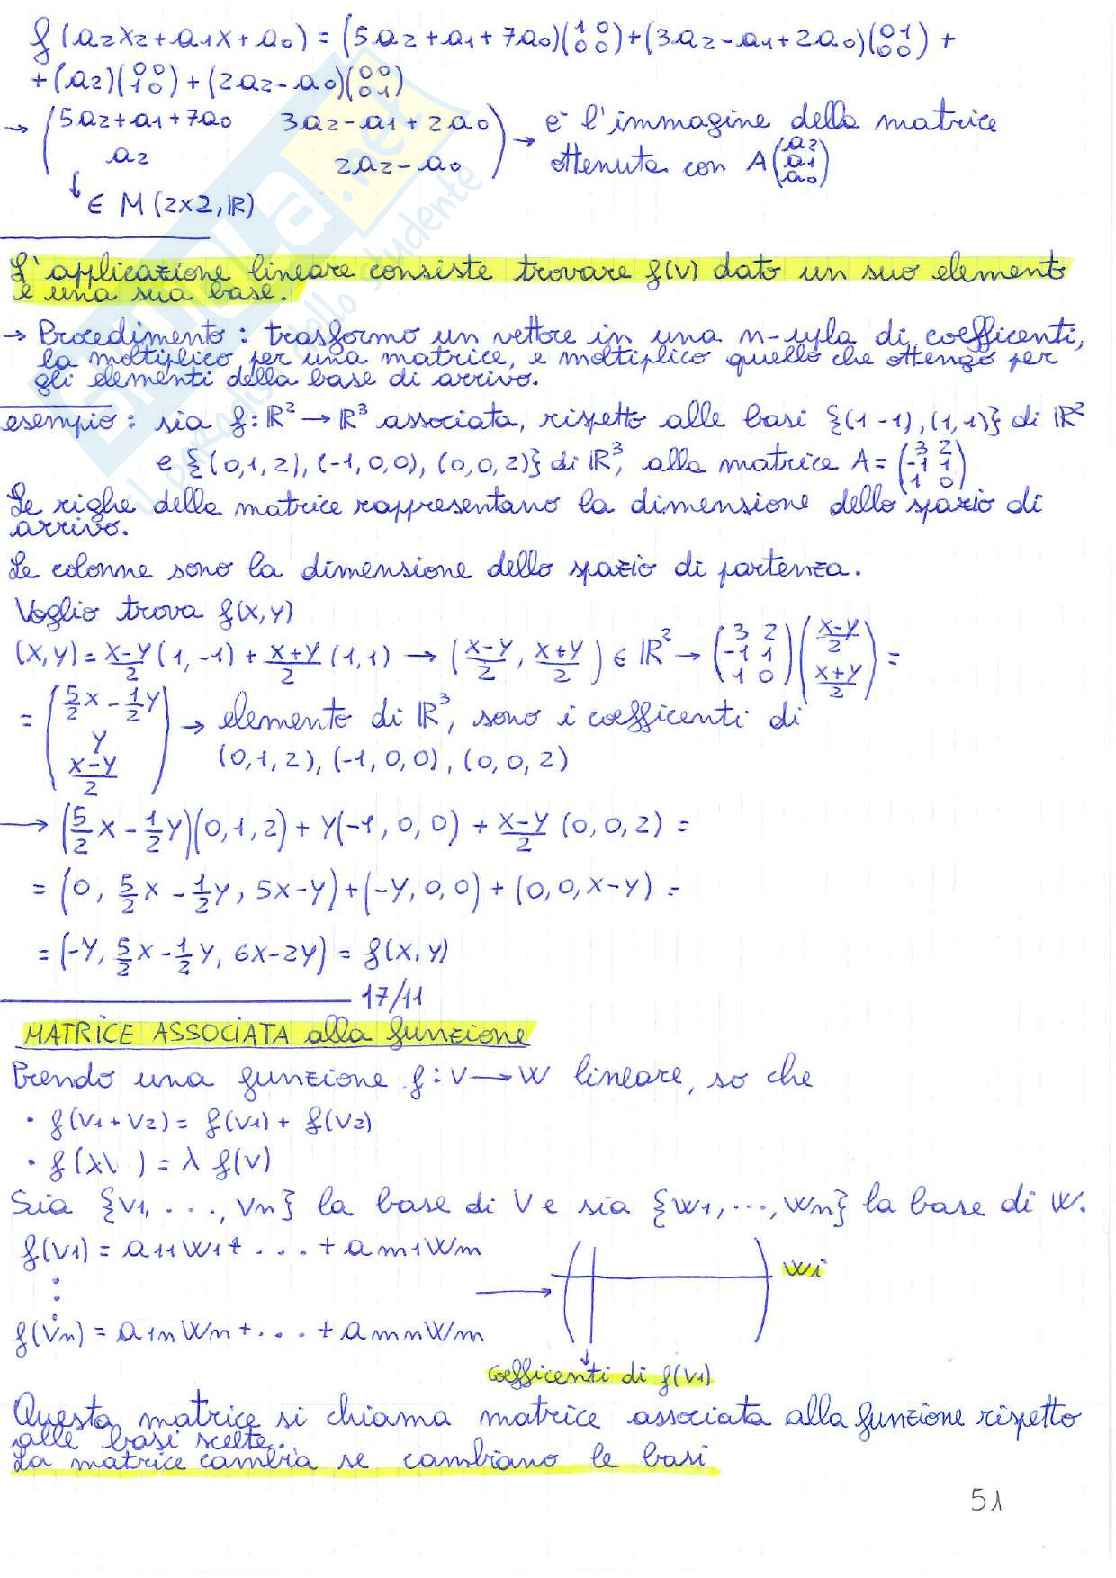 f(a2x2+a1x+a0) = (5a2+a1+7a0)(1 0 0 0)+(3a2-a1+2a0)(0 1 0 0) +
+(a2)(0 0 1 0)+(2a2-a0)(0 0 0 1)
→ (5a2+a1+7a0 3a2-a1+2a0 a2 2a2-a0) → è l'immagine della matrice
ottenuta con A(a2 a1 a0)
↓ ∈ M(2x2,ℝ)
L'applicazione lineare consiste trovare f(v) dato un suo elemento
e una sua base.
→ Procedimento: trasformo un vettore in una n-upla di coefficenti,
la moltiplico per una matrice, e moltiplico quello che ottengo per
gli elementi della base di arrivo.
esempio: sia f:ℝ² → ℝ³ associata, rispetto alle basi {(1 -1), (1,1)} di ℝ²
e {(0,1,2), (-1,0,0), (0,0,2)} di ℝ³, alla matrice A = (3 2 -1 1 1 0)
Le righe della matrice rappresentano la dimensione dello spazio di
arrivo.
Le colonne sono la dimensione dello spazio di partenza.
Voglio trova f(x,y)
(x,y) = x-y/2 (1,-1) + x+y/2 (1,1) → (x-y/2, x+y/2) ∈ ℝ² → (3 2 -1 1 1 0)(x-y/2 x+y/2) =
= (5/2x - 1/2y y x-y/2) → elemento di ℝ³, sono i coefficenti di
(0,1,2), (-1,0,0), (0,0,2)
→ (5/2x - 1/2y)(0,1,2) + y(-1,0,0) + x-y/2 (0,0,2) =
= (0, 5/2x - 1/2y, 5x-y)+(-y,0,0)+(0,0,x-y) =
= (-y, 5/2x - 1/2y, 6x-2y) = f(x,y)
17/11
MATRICE ASSOCIATA alla funzione
Prendo una funzione f: V → W lineare, so che
· f(v1+v2) = f(v1) + f(v2)
· f(λ\ ) = λ f(v)
Sia {v1, ..., vn} la base di V e sia {w1, ..., wn} la base di W.
f(v1) = a11w1+ ... + am1wm
→ ( ) wi
f(vn) = a1nwn+ ... + amnwm
coefficenti di f(v1)
Questa matrice si chiama matrice associata alla funzione rispetto
alle basi scelte.
La matrice cambia se cambiano le basi
51